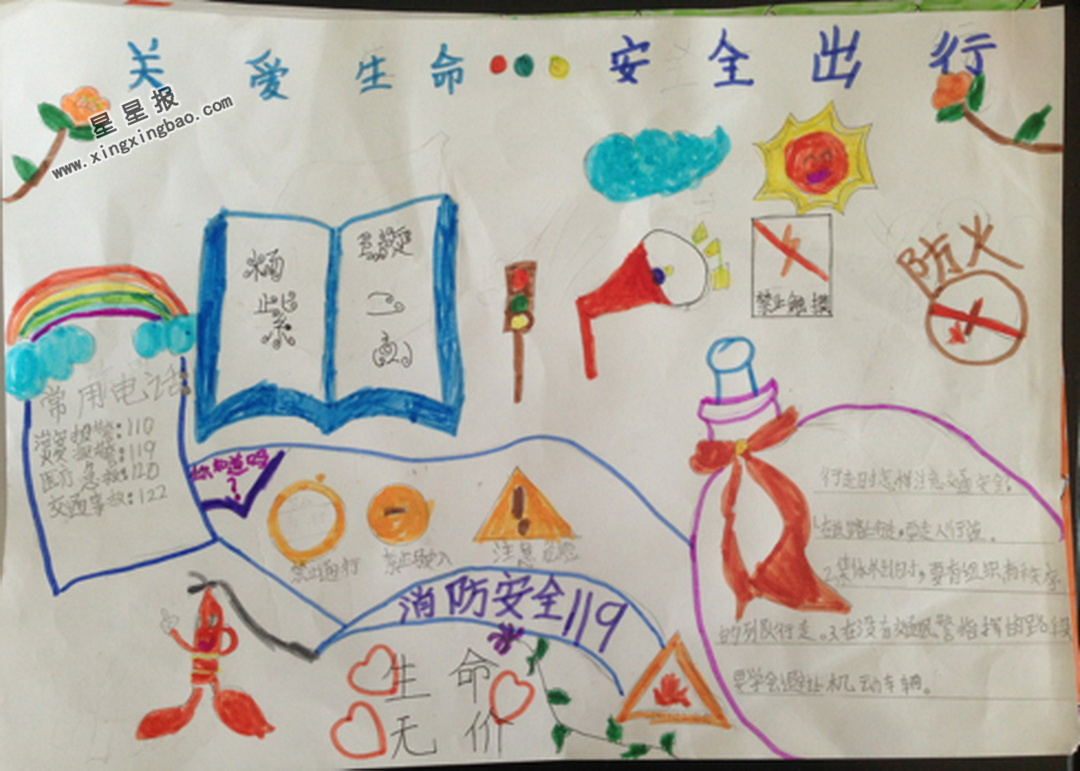 关爱生命 安全出行
星星报
www.xingxingbao.com
防火
禁止触摸
常用电话
报警:110
报警:119
医疗急救:120
交通事故:122
你知道吗
?
禁止通行
禁止驶入
注意危险
消防安全119
生命
无价
行走时怎样注意交通安全?
1.在道路上行走,要走人行道。
2.集体外出时,要有组织有秩序
的列队行走。3.在没有交通民警指挥的路段
要学会避让机动车辆。